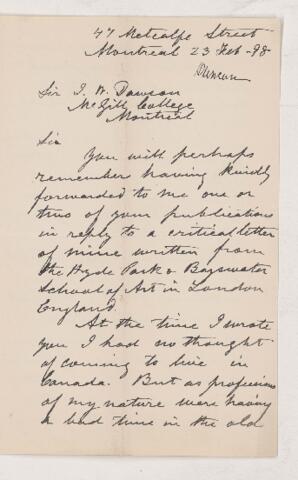 47 Metcalfe Street
Montreal 23 Feb -98
Duncan
Sir J. W. Dawson
McGill College
Montreal
Sir
You will perhaps
remember having kindly
forwarded to me one or
two of your publications
in reply to a critical letter
of mine written from
the Hyde Park & Bayswater
School of Art in London
England.
At the time I wrote
you I had no thought
of coming to live in
Canada. But as professions
of my nature were having
a bad time in the old